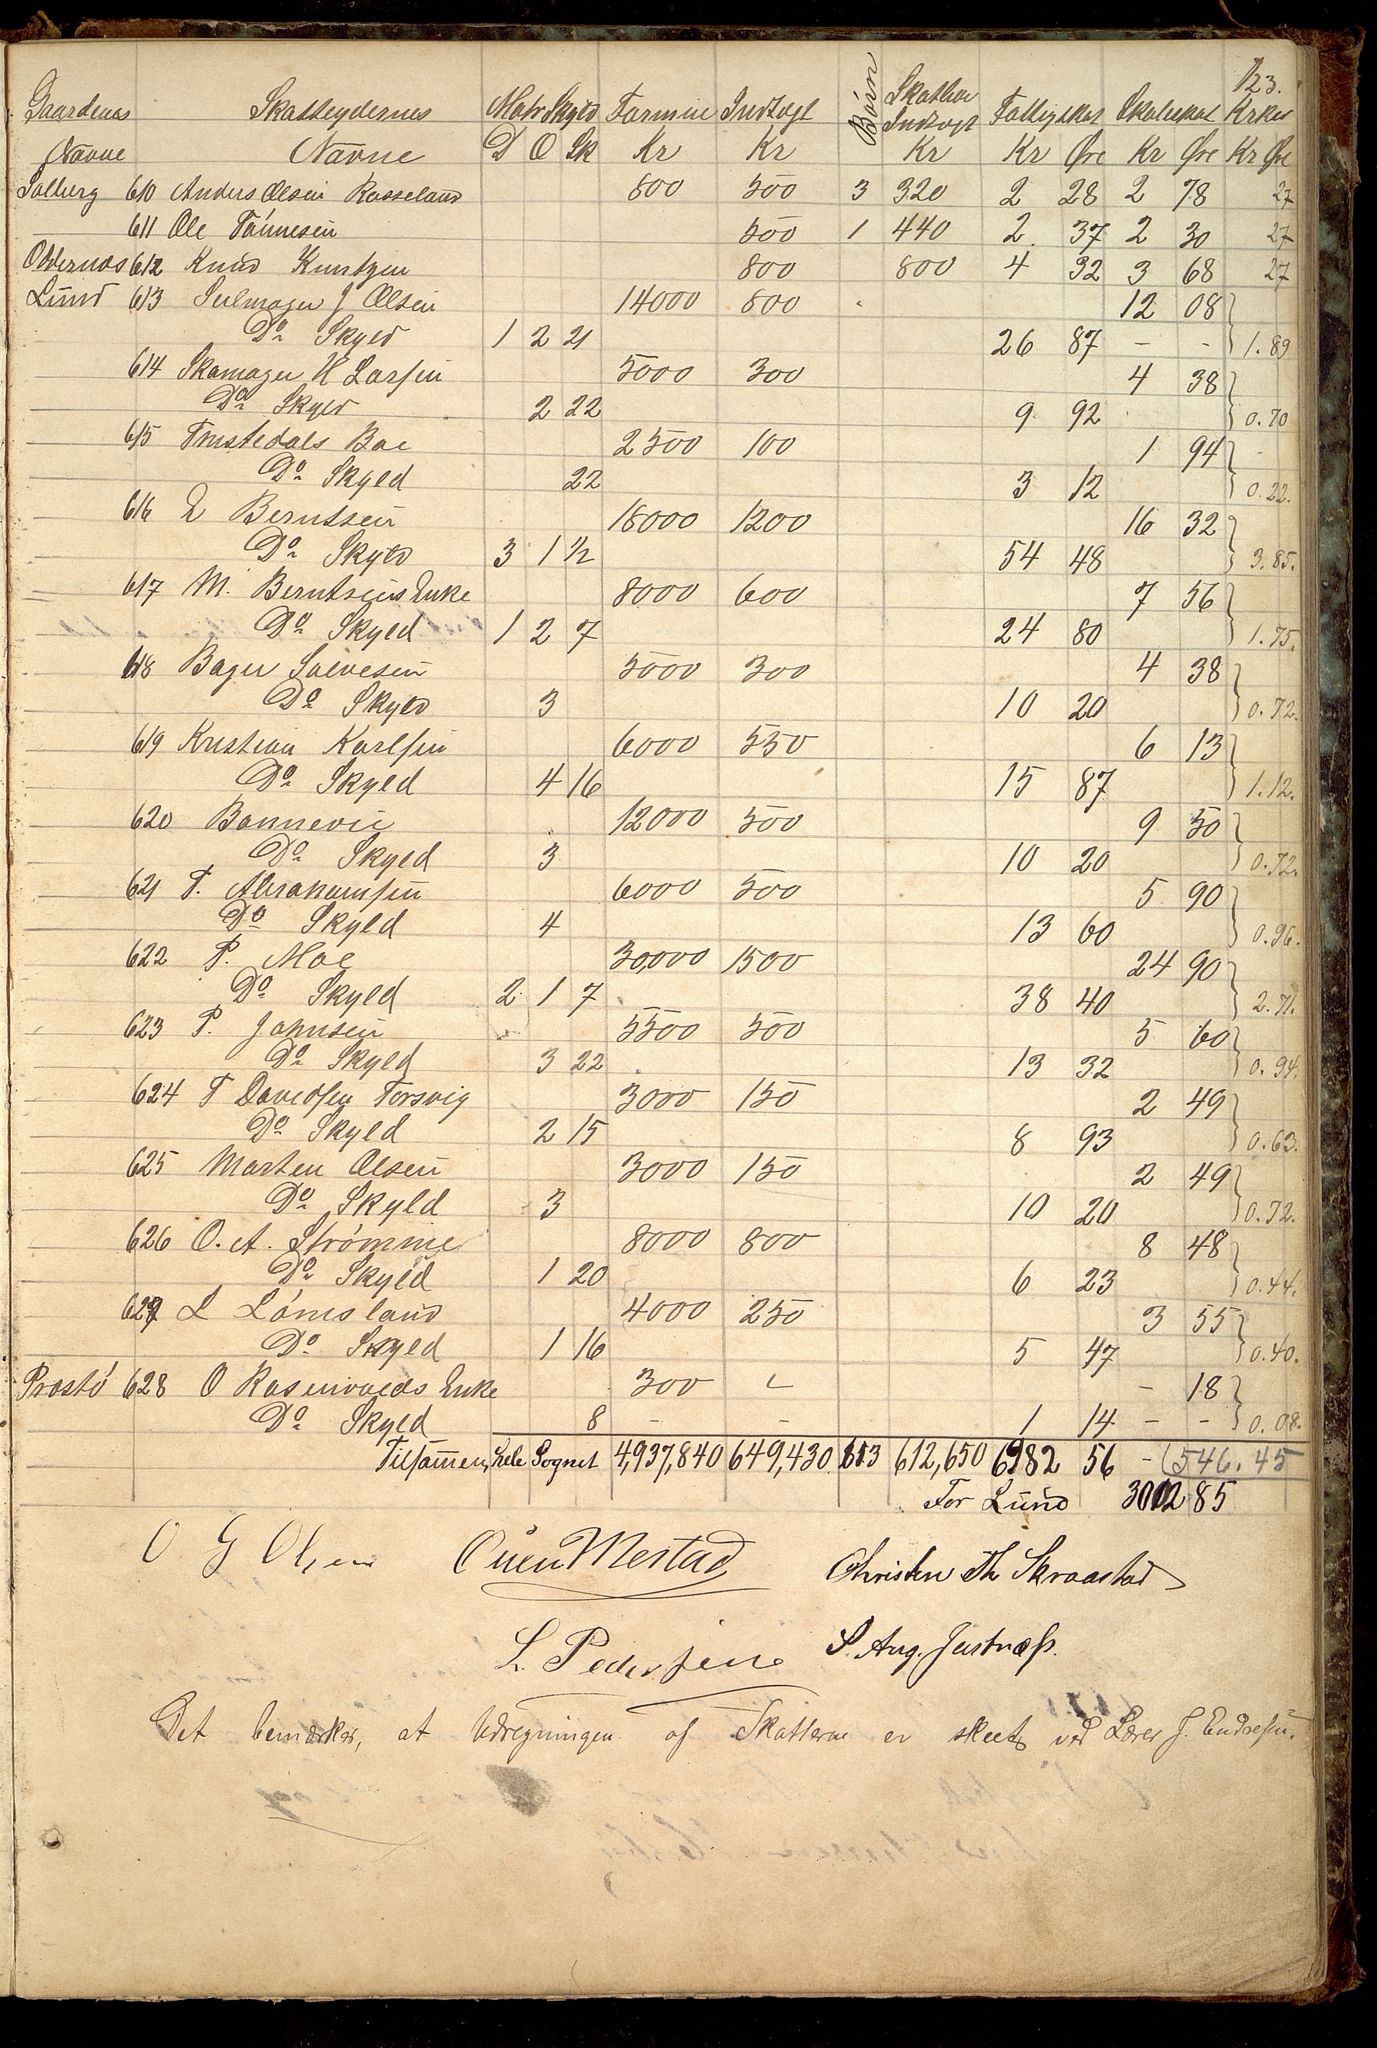 123.
Gaardenes Skatteydernes Matr. Skyld Formue Indtægt Børn Skatbar Indtægt Fattigskat Skoleskat Kirkesk
Navne Navne D O Sk Kr Kr Kr Kr Øre Kr Øre Kr Øre
Solberg 610 Anders Olsen Rosseland 800 500 3 320 2 28 2 78 27
611 Ole Tønnesen 500 1 440 2 37 2 30 27
Odderness 612 Knud Knutzen 800 800 4 32 3 68 27
Lund 613 Seilmager J Olsen 14000 800 12 08
Do Skyld 1 2 21 26 87 - - 1.89
614 Skomager H Larsen 5000 300 4 38
Do Skyld 2 22 9 92 0.70
615 Tmstedals Boe 2500 100 1 94
Do Skyld 22 3 12 0.22.
616 E Berntsen 18000 1200 16 32
Do Skyld 3 1 ½ 54 48 3.85.
617 M. Berntsens Enke 8000 600 7 56
Do Skyld 1 2 7 24 80 1.75.
618 Bager Salvesen 5000 300 4 38
Do Skyld 3 10 20 0.72.
619 Kristian Karlsen 6000 550 6 13
Do Skyld 4 16 15 87 1.12.
620 Bonnevie 12000 500 9 50
Do Skyld 3 10 20 0.72.
621 T. Abrahamsen 6000 500 5 90
Do Skyld 4 13 60 0.96.
622 P. Moe 30,000 1500 24 90
Do Skyld 2 1 7 38 40 2.71.
623 P. Johnsen 5500 500 5 60
Do Skyld 3 22 13 32 0.94.
624 T Davidsen Torsvig 3000 150 2 49
Do Skyld 2 15 8 93 0.63.
625 Morten Olsen 3000 150 2 49
Do Skyld 3 10 20 0.72.
626 O. A. Strømme 8000 800 8 48
Do Skyld 1 20 6 23 0.44.
627 L Lömsland 4000 250 3 55
Do Skyld 1 16 5 47 0.40.
Prostö 628 O Rosenvolds Enke 300 - 18
Do Skyld 8 - - 1 14 - - 0.08.
Tilsammen, hele Sognet 4,937,840 649,430 813 612,650 6982 56 - 546.45
For Lund 3012 85
O G Olsen Ouen Mestad Christen Th Skraastad
L. Pedersen S. Aug. Justnæss.
Det bemærkes, at Udregningen af Skatterne er skeet ved Lærer J. Endresen.